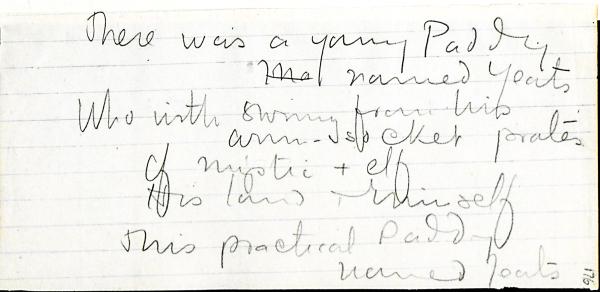 There was a young Paddy
named Yeats
Who with swing from his
arm-socket prates
Of mystic + elf
His land + himself
This practical Paddy
named Yeats
176